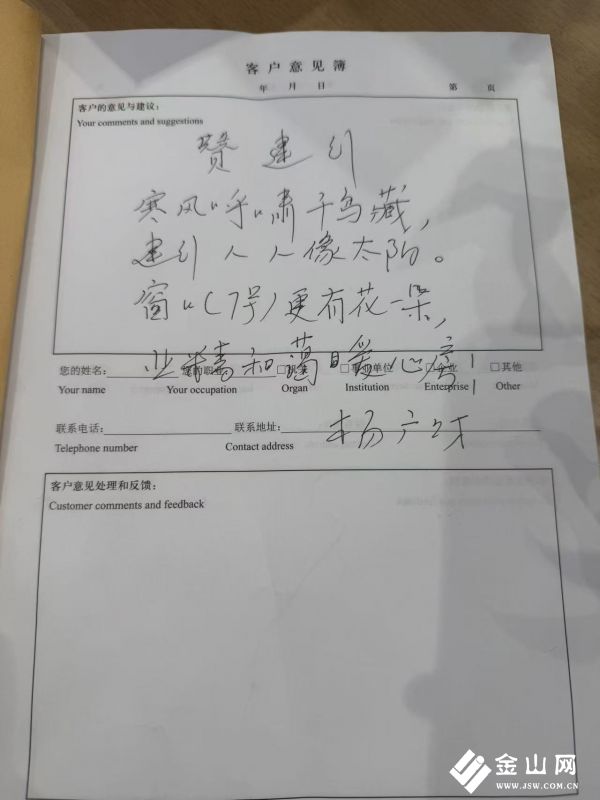 客户意见簿
年 月 日 第 页
客户的意见与建议：
Your comments and suggestions
赞建行
寒风呼啸千鸟藏，
建行人人像太阳。
窗口(7号)更有花一朵，
业精和蔼暖心房！
您的姓名： 您的职业： □机关 □事业单位 □企业 □其他
Your name Your occupation Organ Institution Enterprise Other
联系电话： 联系地址： 杨广
Telephone number Contact address
客户意见处理和反馈：
Customer comments and feedback
金山网
WWW.JSW.COM.CN